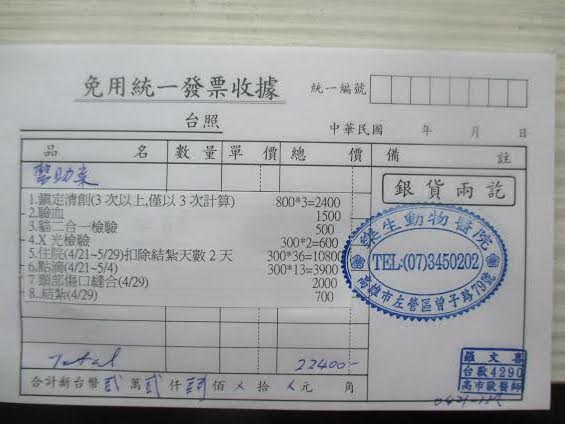 免用統一發票收據
統一編號
台照
中華民國 年 月 日
品 名 數量 單 價 總 價 備 註
醫助案
1.鎮定清創(3 次以上,僅以 3 次計算) 800*3=2400
2.驗血 1500
3.貓二合一檢驗 500
4.X 光檢驗 300*2=600
5.住院(4/21~5/29)扣除結紮天數 2 天 300*36=10800
6.點滴(4/21~5/4) 300*13=3900
7.頸部傷口縫合(4/29) 2000
8..結紮(4/29) 700
銀貨兩訖
樂生動物醫院
TEL:(07)3450202
高雄市左營區曾子路79號
Total 22400-
合計新台幣 貳 萬 貳 仟 肆 佰 拾 元 角
羅文喜
台獸4290
高市獸醫師